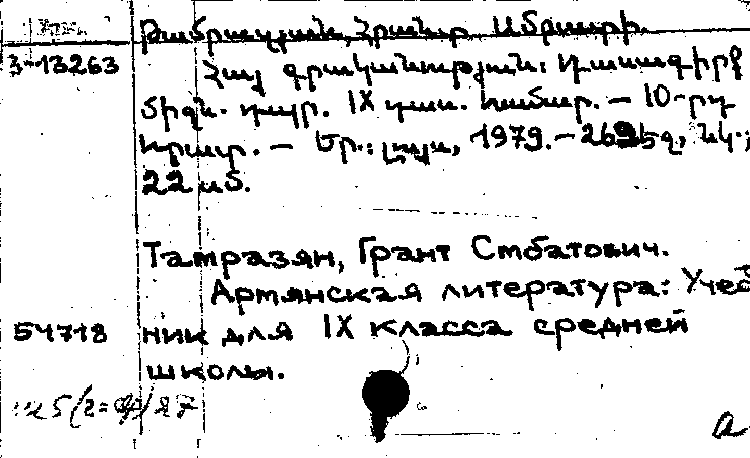 Թամրազյան, Հրանտ Սմբատի.
3-13263
Հայ գրականություն: Դասագիրք
միջն. դպր. IX դաս. համար. — 10-րդ
հրատ. — Եր.: Լույս, 1979. — 262 էջ, նկ.;
22 սմ.
Тамразян, Грант Смбатович.
Армянская литература: Учеб
54718 ник для IX класса средней
школы.